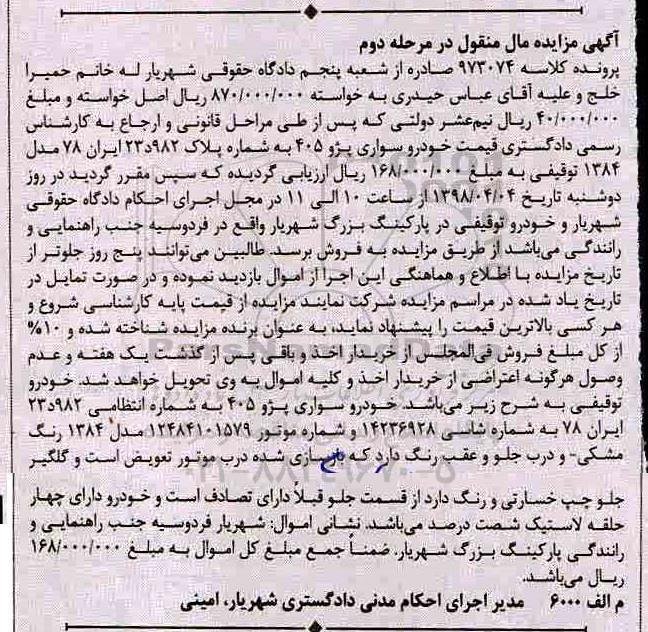 آگهی مزایده مال منقول در مرحله دوم
پرونده کلاسه ۹۷۳۰۷۴ صادره از شعبه پنجم دادگاه حقوقی شهریار له خانم حمیرا
خلج و علیه آقای عباس حیدری به خواسته ۸۷۰/۰۰۰/۰۰۰ ریال اصل خواسته و مبلغ
۴۰/۰۰۰/۰۰۰ ریال نیم‌عشر دولتی که پس از طی مراحل قانونی و ارجاع به کارشناس
رسمی دادگستری قیمت خودرو سواری پژو ۴۰۵ به شماره پلاک ۹۸۲د۲۳ ایران ۷۸ مدل
۱۳۸۴ توقیفی به مبلغ ۱۶۸/۰۰۰/۰۰۰ ریال ارزیابی گردیده که سپس مقرر گردید در روز
دوشنبه تاریخ ۱۳۹۸/۰۴/۰۴ از ساعت ۱۰ الی ۱۱ در محل اجرای احکام دادگاه حقوقی
شهریار و خودرو توقیفی در پارکینگ بزرگ شهریار واقع در فردوسیه جنب راهنمایی و
رانندگی می‌باشد از طریق مزایده به فروش برسد. طالبین می‌توانند پنج روز جلوتر از
تاریخ مزایده با اطلاع و هماهنگی این اجرا از اموال بازدید نموده و در صورت تمایل در
تاریخ یاد شده در مراسم مزایده شرکت نمایند مزایده از قیمت پایه کارشناسی شروع و
هر کسی بالاترین قیمت را پیشنهاد نماید، به عنوان برنده مزایده شناخته شده و ۱۰%
از کل مبلغ فروش فی‌المجلس از خریدار اخذ و باقی پس از گذشت یک هفته و عدم
وصول هرگونه اعتراضی از خریدار اخذ و کلیه اموال به وی تحویل خواهد شد. خودرو
توقیفی به شرح زیر می‌باشد. خودرو سواری پژو ۴۰۵ به شماره انتظامی ۹۸۲د۲۳
ایران ۷۸ به شماره شاسی ۱۴۲۳۶۹۲۸ و شماره موتور ۱۲۴۸۴۱۰۱۵۷۹ مدل ۱۳۸۴ رنگ
مشکی- و درب جلو و عقب رنگ دارد که بازسازی شده درب موتور تعویض است و گلگیر
جلو چپ خسارتی و رنگ دارد از قسمت جلو قبلاً دارای تصادف است و خودرو دارای چهار
حلقه لاستیک شصت درصد می‌باشد. نشانی اموال: شهریار فردوسیه جنب راهنمایی و
رانندگی پارکینگ بزرگ شهریار. ضمناً جمع مبلغ کل اموال به مبلغ ۱۶۸/۰۰۰/۰۰۰
ریال می‌باشد.
م الف ۶۰۰۰ مدیر اجرای احکام مدنی دادگستری شهریار، امینی